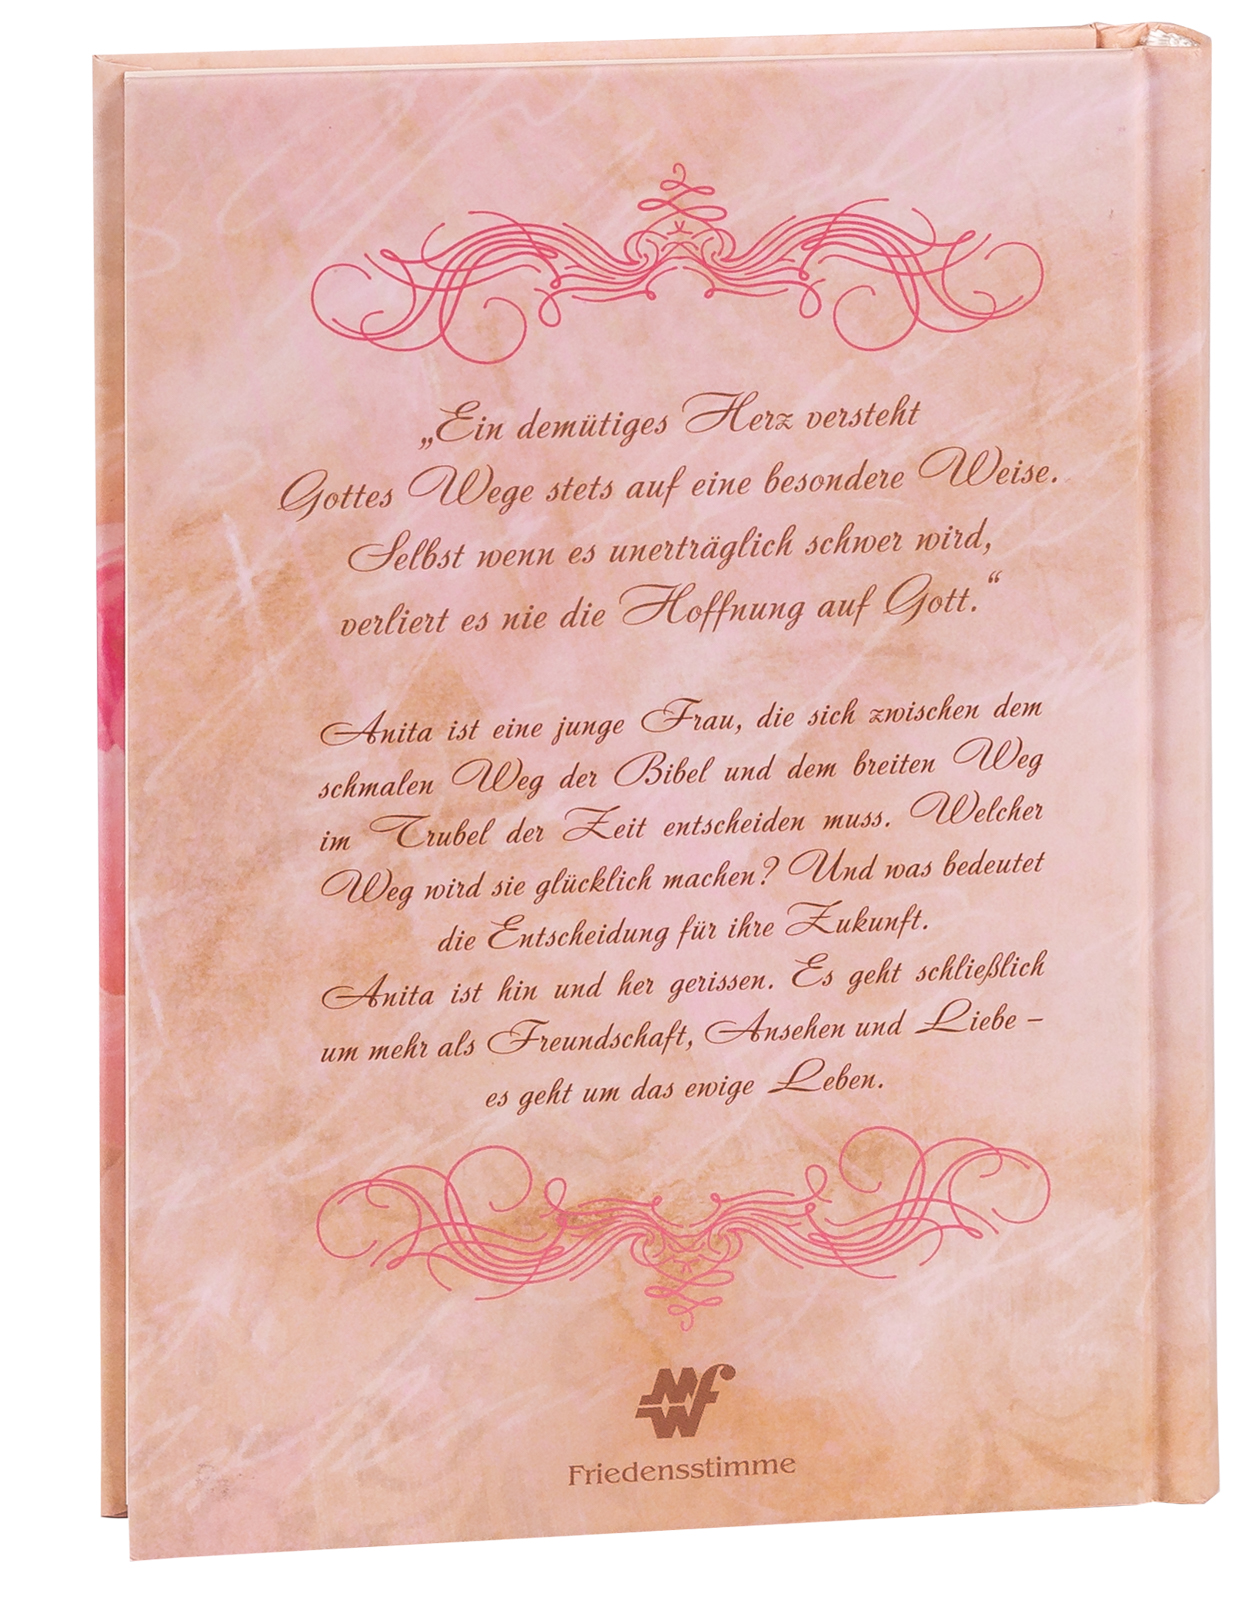 „Ein demütiges Herz versteht
Gottes Wege stets auf eine besondere Weise.
Selbst wenn es unerträglich schwer wird,
verliert es nie die Hoffnung auf Gott.“
Anita ist eine junge Frau, die sich zwischen dem
schmalen Weg der Bibel und dem breiten Weg
im Trubel der Zeit entscheiden muss. Welcher
Weg wird sie glücklich machen? Und was bedeutet
die Entscheidung für ihre Zukunft.
Anita ist hin und her gerissen. Es geht schließlich
um mehr als Freundschaft, Ansehen und Liebe –
es geht um das ewige Leben.
Friedensstimme